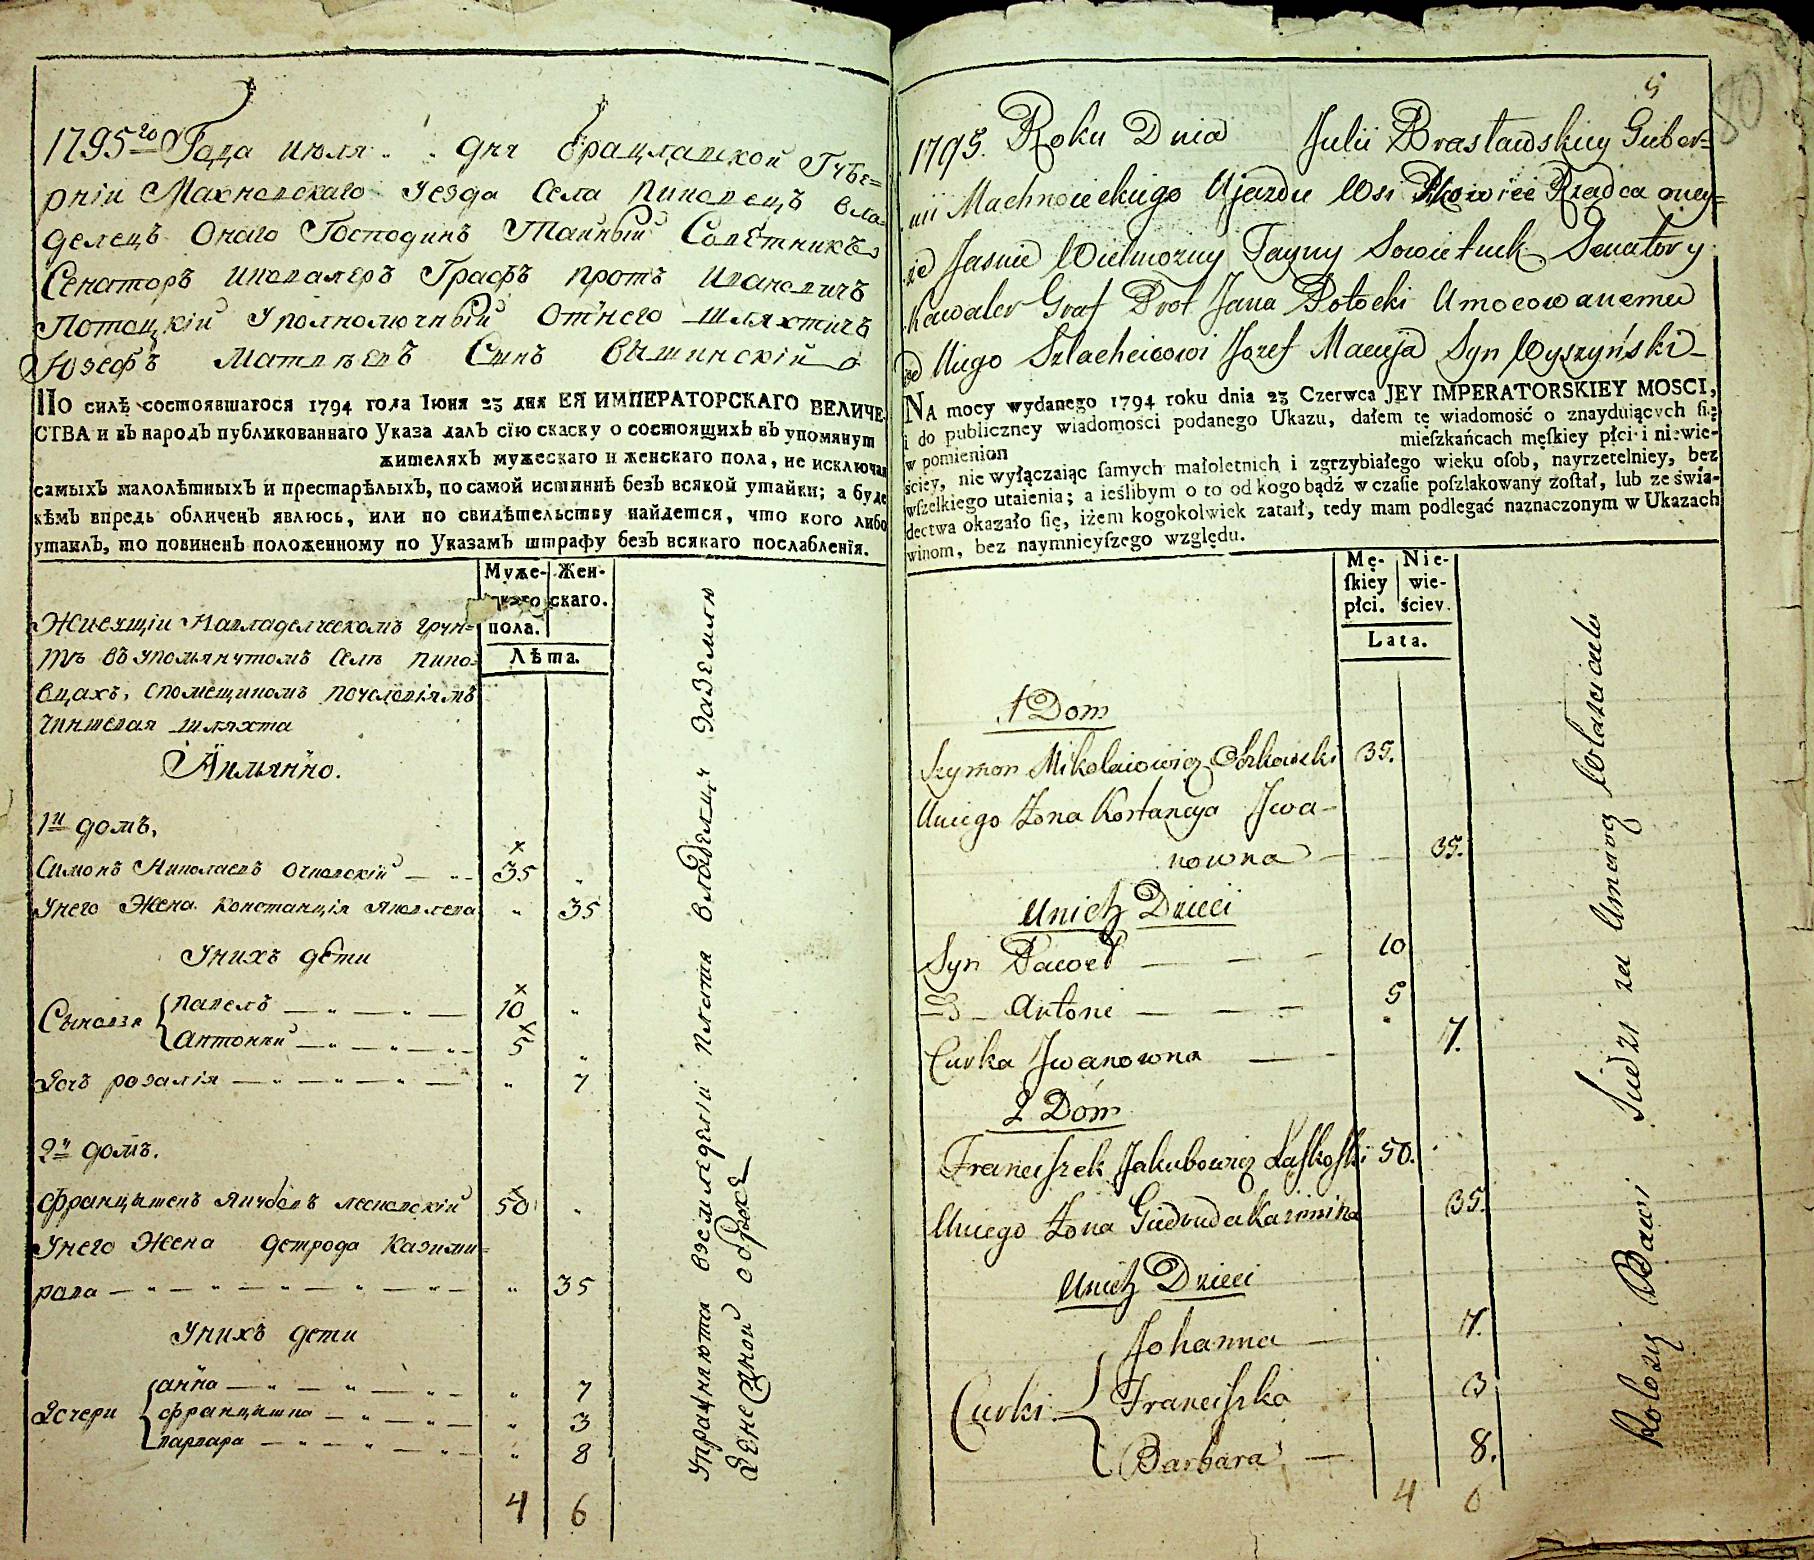 1795го Года июля . . дня Брацлавской Губе=
рніи Махновскаго уезда села Пиковецъ вла=
делецъ онаго Господинъ Тайный Советникъ
Сенаторъ икавалеръ Графъ Протъ Ивановичъ
Потоцкій уполномочный отнего шляхтичъ
Юзефъ Матвѣевъ Сынъ Вышинскій
По силѣ состоявшагося 1794 года Іюня 23 дня ЕЯ ИМПЕРАТОРСКАГО ВЕЛИЧЕ-
СТВА и въ народъ публикованнаго Указа далъ сїю скаску о состоящихъ въ упомянут
жителяхъ мужескаго и женскаго пола, не исключая
самыхъ малолѣтныхъ и престарѣлыхъ, по самой истиннѣ безъ всякой утайки; а буде
кѣмъ впредь обличенъ явлюсь, или по свидѣтельству найдется, что кого либо
утаилъ, то повиненъ положенному по Указамъ штрафу безъ всякаго послабленїя.
Муже- Жен-
скаго скаго.
пола.
Лѣта.
Живущіи Навладелческомъ грун=
тѣ въ упомянутомъ селѣ Пико=
вцахъ, спомещикомъ
чиншевая шляхта
Имянно.
1й домъ.
Симонъ Николаевъ Очковскій — 35 „
Унего Жена Констанція Яковлева „ 35
Унихъ дети
Сыновья { Павелъ — „ — „ — 10 „
Антоній — „ — „ — 5 „
Дочъ розалія — „ — „ — „ 7
2й домъ.
Францышекъ Якубовъ лесковскій 50 „
Унего Жена Гетруда Казими=
рова — „ — „ — „ — „ 35
Унихъ дети
Дочери { анна — „ — „ — „ 7
францышка — „ — „ 3
варвара — „ — „ — „ 8
4 6
Упражняются вземледеліи плотя владелцу заземлю
Денежной оброкъ
5
80
1795. Roku Dnia Julii Brasławskiey Guber=
nii Machnowieckiego Ujazdu Wsi Pikowiec Rządca oney=
że Jasnie Wielmożny Tayny Sowietnik Senator y
Kawaler Graf Prot Jana Potocki Umocowanemu
od Niego Szlachcicowi Jozef Macieja Syn Wyszyński
NA mocy wydanego 1794 roku dnia 23 Czerwca JEY IMPERATORSKIEY MOSCI,
i do publiczney wiadomości podanego Ukazu, dałem tę wiadomość o znayduiących ſię
w pomienion mieſzkańcach męſkiey płci i niewie-
ściey, nie wyłączaiąc ſamych małoletnich i zgrzybiałego wieku oſob, nayrzetelniey, bez
wſzelkiego utaienia; a ieślibym o to od kogo bądź w czaſie poſzlakowany został, lub ze świa-
dectwa okazało ſię, iżem kogokolwiek zataił, tedy mam podlegać naznaczonym w Ukazach
winom, bez naymnieyſzego względu.
Mę- Nie-
ſkiey wie-
płci. ściey.
Lata.
1 Dom
Szymon Mikołaiowicz Oczkowski 35.
Uniego Żona Kostancya Jwa-
nowna — 35.
Unich Dzieci
Syn Paweł — — — 10
— Antoni — — — 5
Curka Jwanowna — — „ 7.
2 Dom
Franciszek Jakubowicz Laskoski 50.
Uniego Żona Giedruda Kazimira 35.
Unich Dzieci
Curki { Johanna — 7.
Franciszka 3
Barbara — 8.
4 6
Rolą się Bawi Siedzi za Umową Właściciela